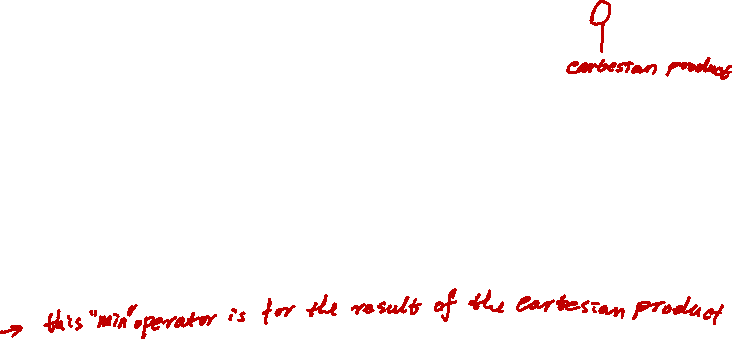 cartesian product
→ this "min" operator is for the result of the cartesian product